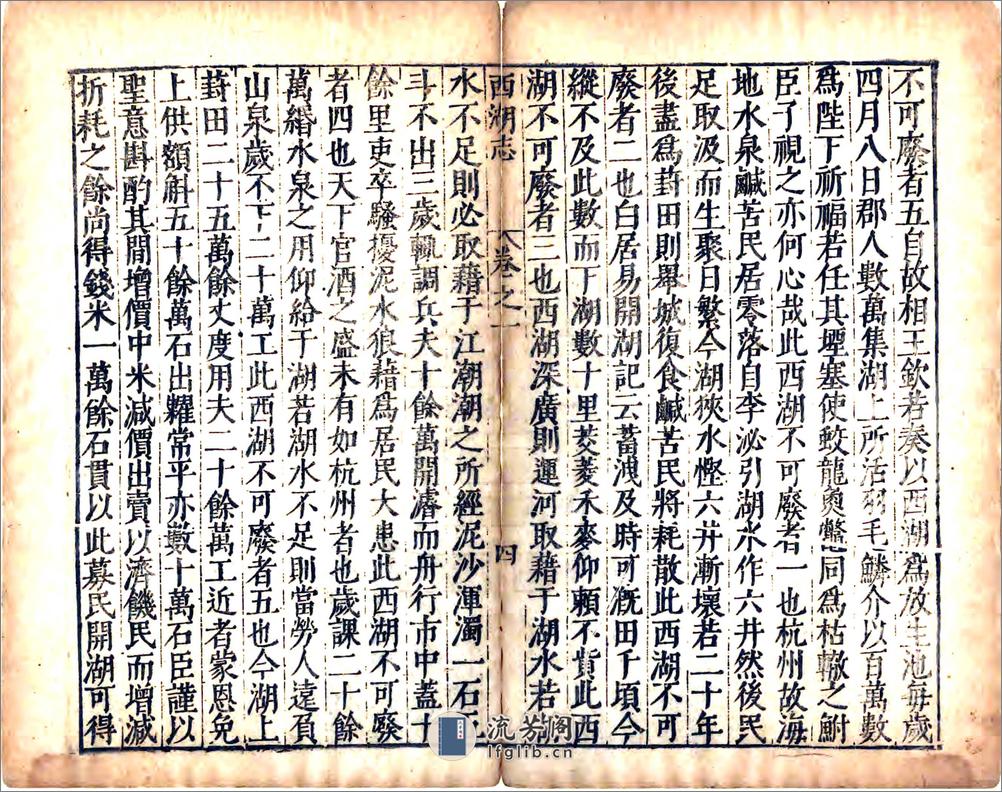 不可廢者五自故相王欽若奏以西湖爲放生池每歲
四月八日郡人數萬集湖上所活羽毛鱗介以百萬數
爲陛下祈福若任其堙塞使蛟龍魚鱉同爲枯轍之鮒
臣子視之亦何心哉此西湖不可廢者一也杭州故海
地水泉鹹苦民居零落自李泌引湖水作六井然後民
足取汲而生聚日繁今湖狹水慳六井漸壞若二十年
後盡爲葑田則舉城復食鹹苦民將耗散此西湖不可
廢者二也白居易開湖記云蓄洩及時可溉田千頃今
縱不及此數而下湖數十里茭菱禾麥仰賴不貲此西
湖不可廢者三也西湖深廣則運河取藉于湖水若
西湖志 卷之一 四
水不足則必取藉于江潮潮之所經泥沙渾濁一石五
斗不出三歲輒調兵夫十餘萬開濬而舟行市中蓋十
餘里吏卒騷擾泥水狼藉爲居民大患此西湖不可廢
者四也天下官酒之盛未有如杭州者也歲課二十餘
萬緡水泉之用仰給于湖若湖水不足則當勞人遠負
山泉歲不下二十萬工此西湖不可廢者五也今湖上
葑田二十五萬餘丈度用夫二十餘萬工近者蒙恩免
上供額斛五十餘萬石出糶常平亦數十萬石臣謹以
聖意斟酌其間增價中米減價出賣以濟饑民而增減
折耗之餘尚得錢米一萬餘石貫以此募民開湖可得
流芳阁
lfglib.cn